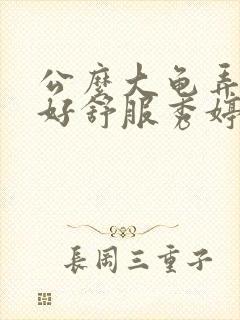 公麽大龟弄
好舒服秀婷
長岡三重子